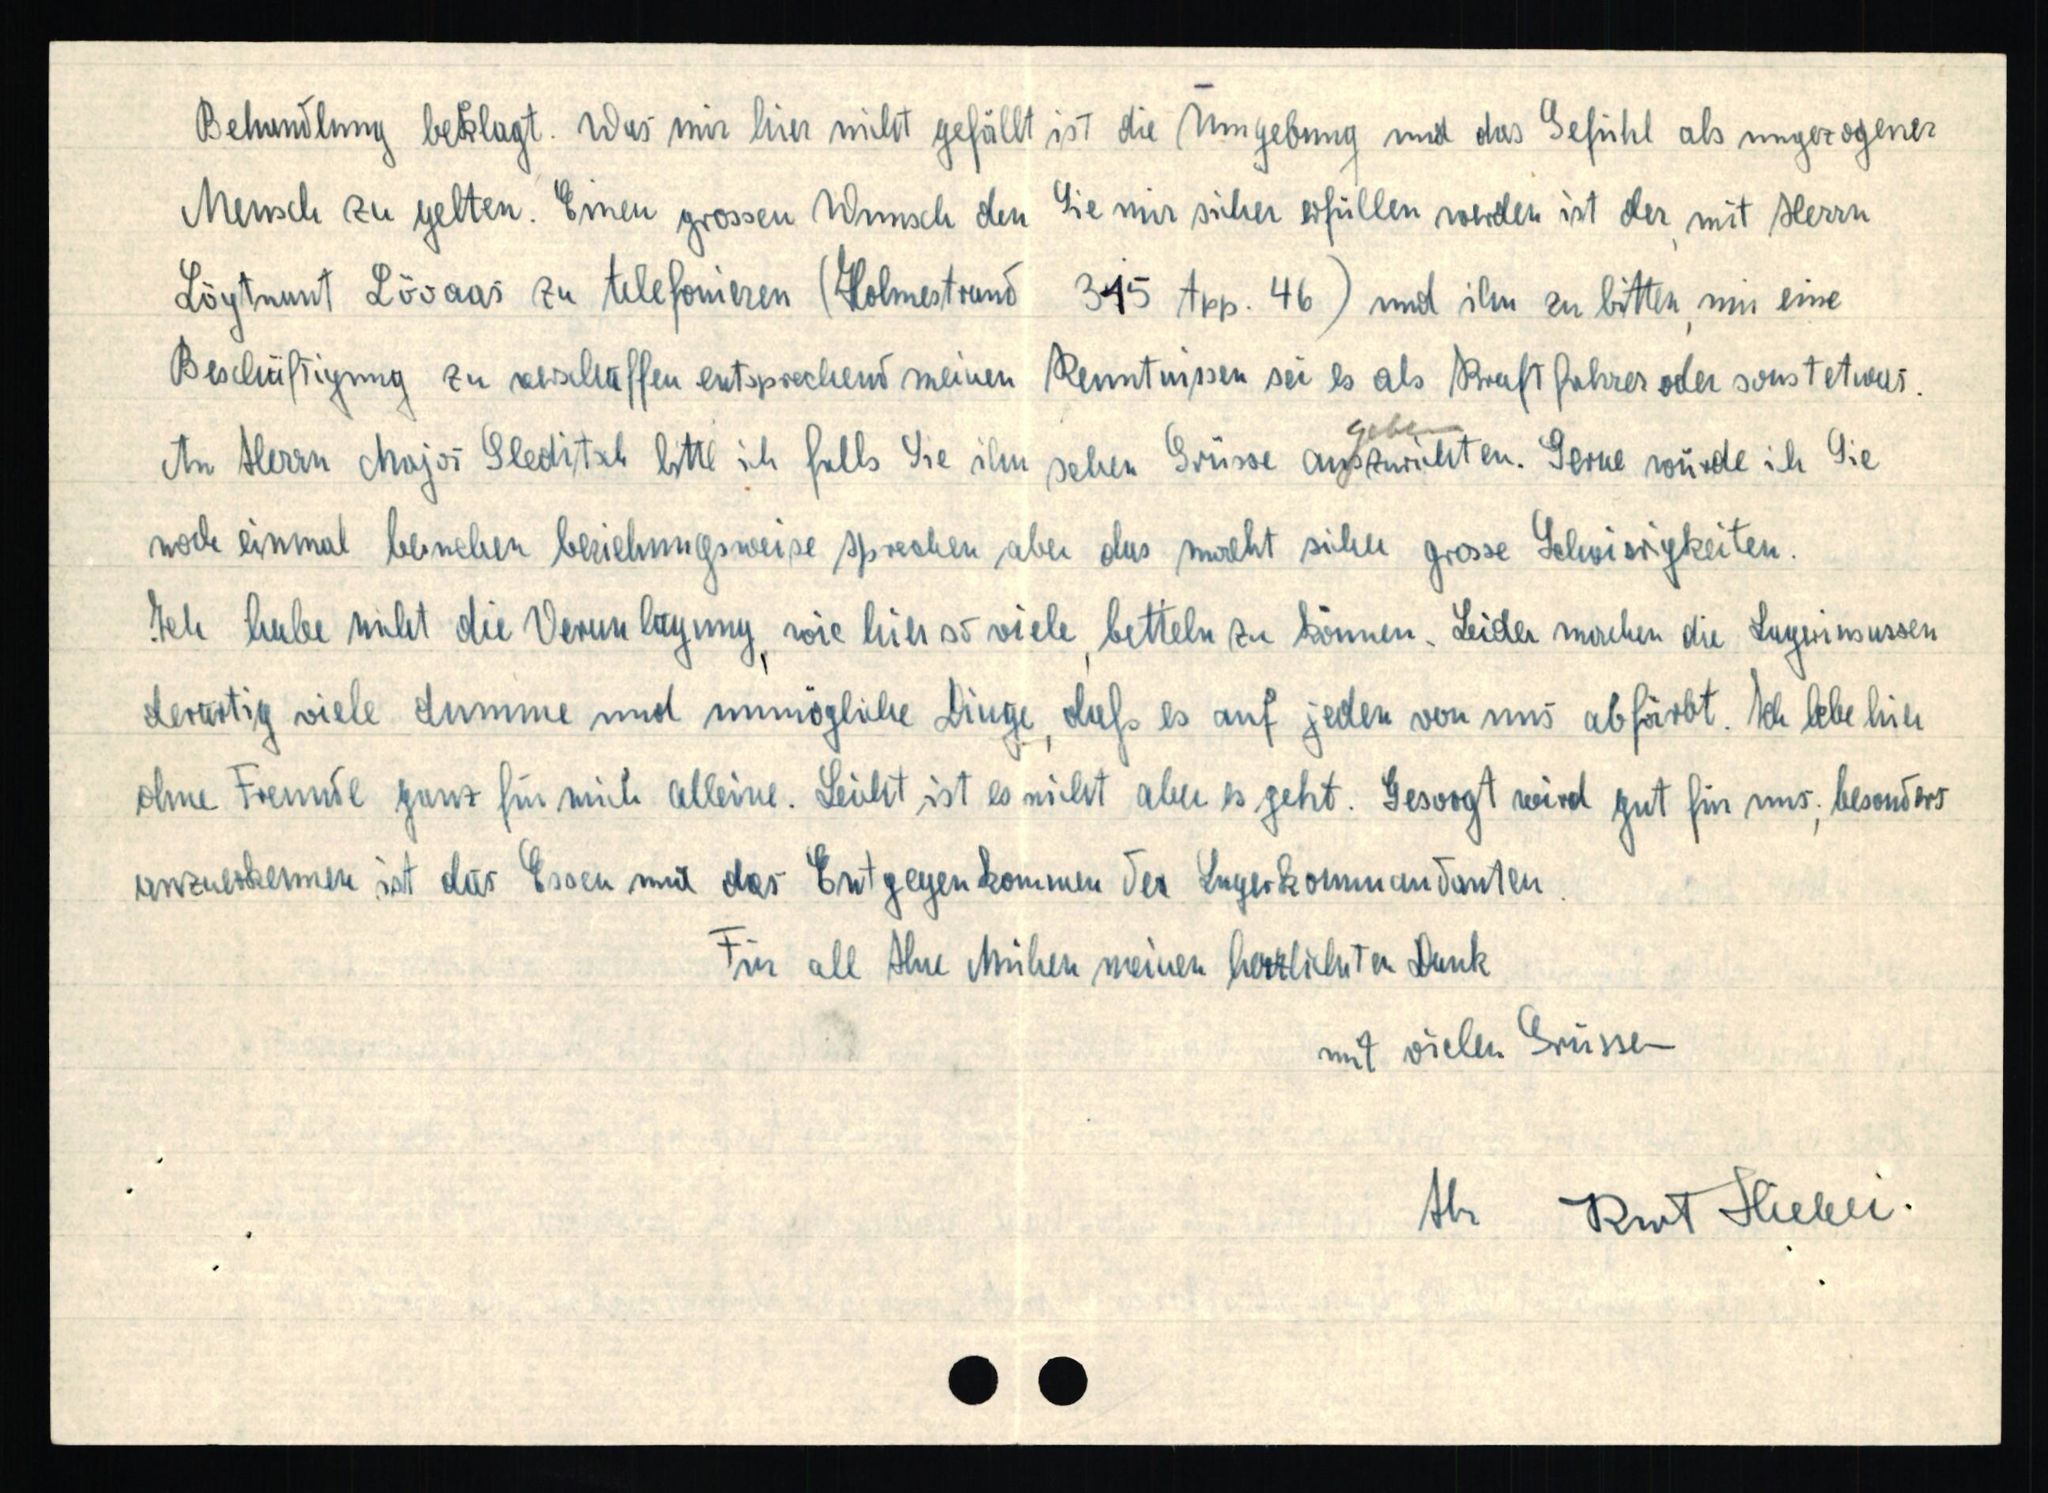 Behandlung beklagt. Was mir hier nicht gefällt ist die Umgebung und das Gefühl als ungezogener
Mensch zu gelten. Einen grossen Wunsch den Sie mir sicher erfüllen werden ist der, mit Herrn
Löytnant Lövaas zu telefonieren (Holmestrand 315 App. 46) und ihn zu bitten, mir eine
Beschäftigung zu verschaffen entsprechend meinen Kenntnissen sei es als Kraftfahrer oder sonst etwas.
geben
An Herrn Major Gleditsch bitte ich falls Sie ihn sehen Grüsse auszurichten. Gerne würde ich Sie
noch einmal besuchen beziehungsweise sprechen aber das macht sicher grosse Schwierigkeiten.
Ich habe nicht die Veranlagung, wie hier so viele, betteln zu können. Leider machen die Lagerinsassen
derartig viele dumme und unmögliche Dinge, dass es auf jeden von uns abfärbt. Ich lebe hier
ohne Freunde ganz für mich alleine. Leicht ist es nicht aber es geht. Gesorgt wird gut für uns, besonders
anzuerkennen ist das Essen und das Entgegenkommen der Lagerkommandanten.
Für all Ihre Mühen meinen herzlichsten Dank
mit vielen Grüssen
Ihr Kurt